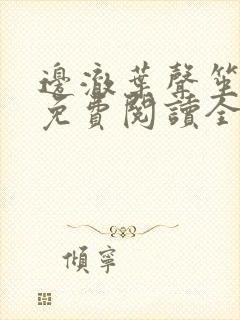 邊澈葉聲笙
免費閱讀全
傾寧